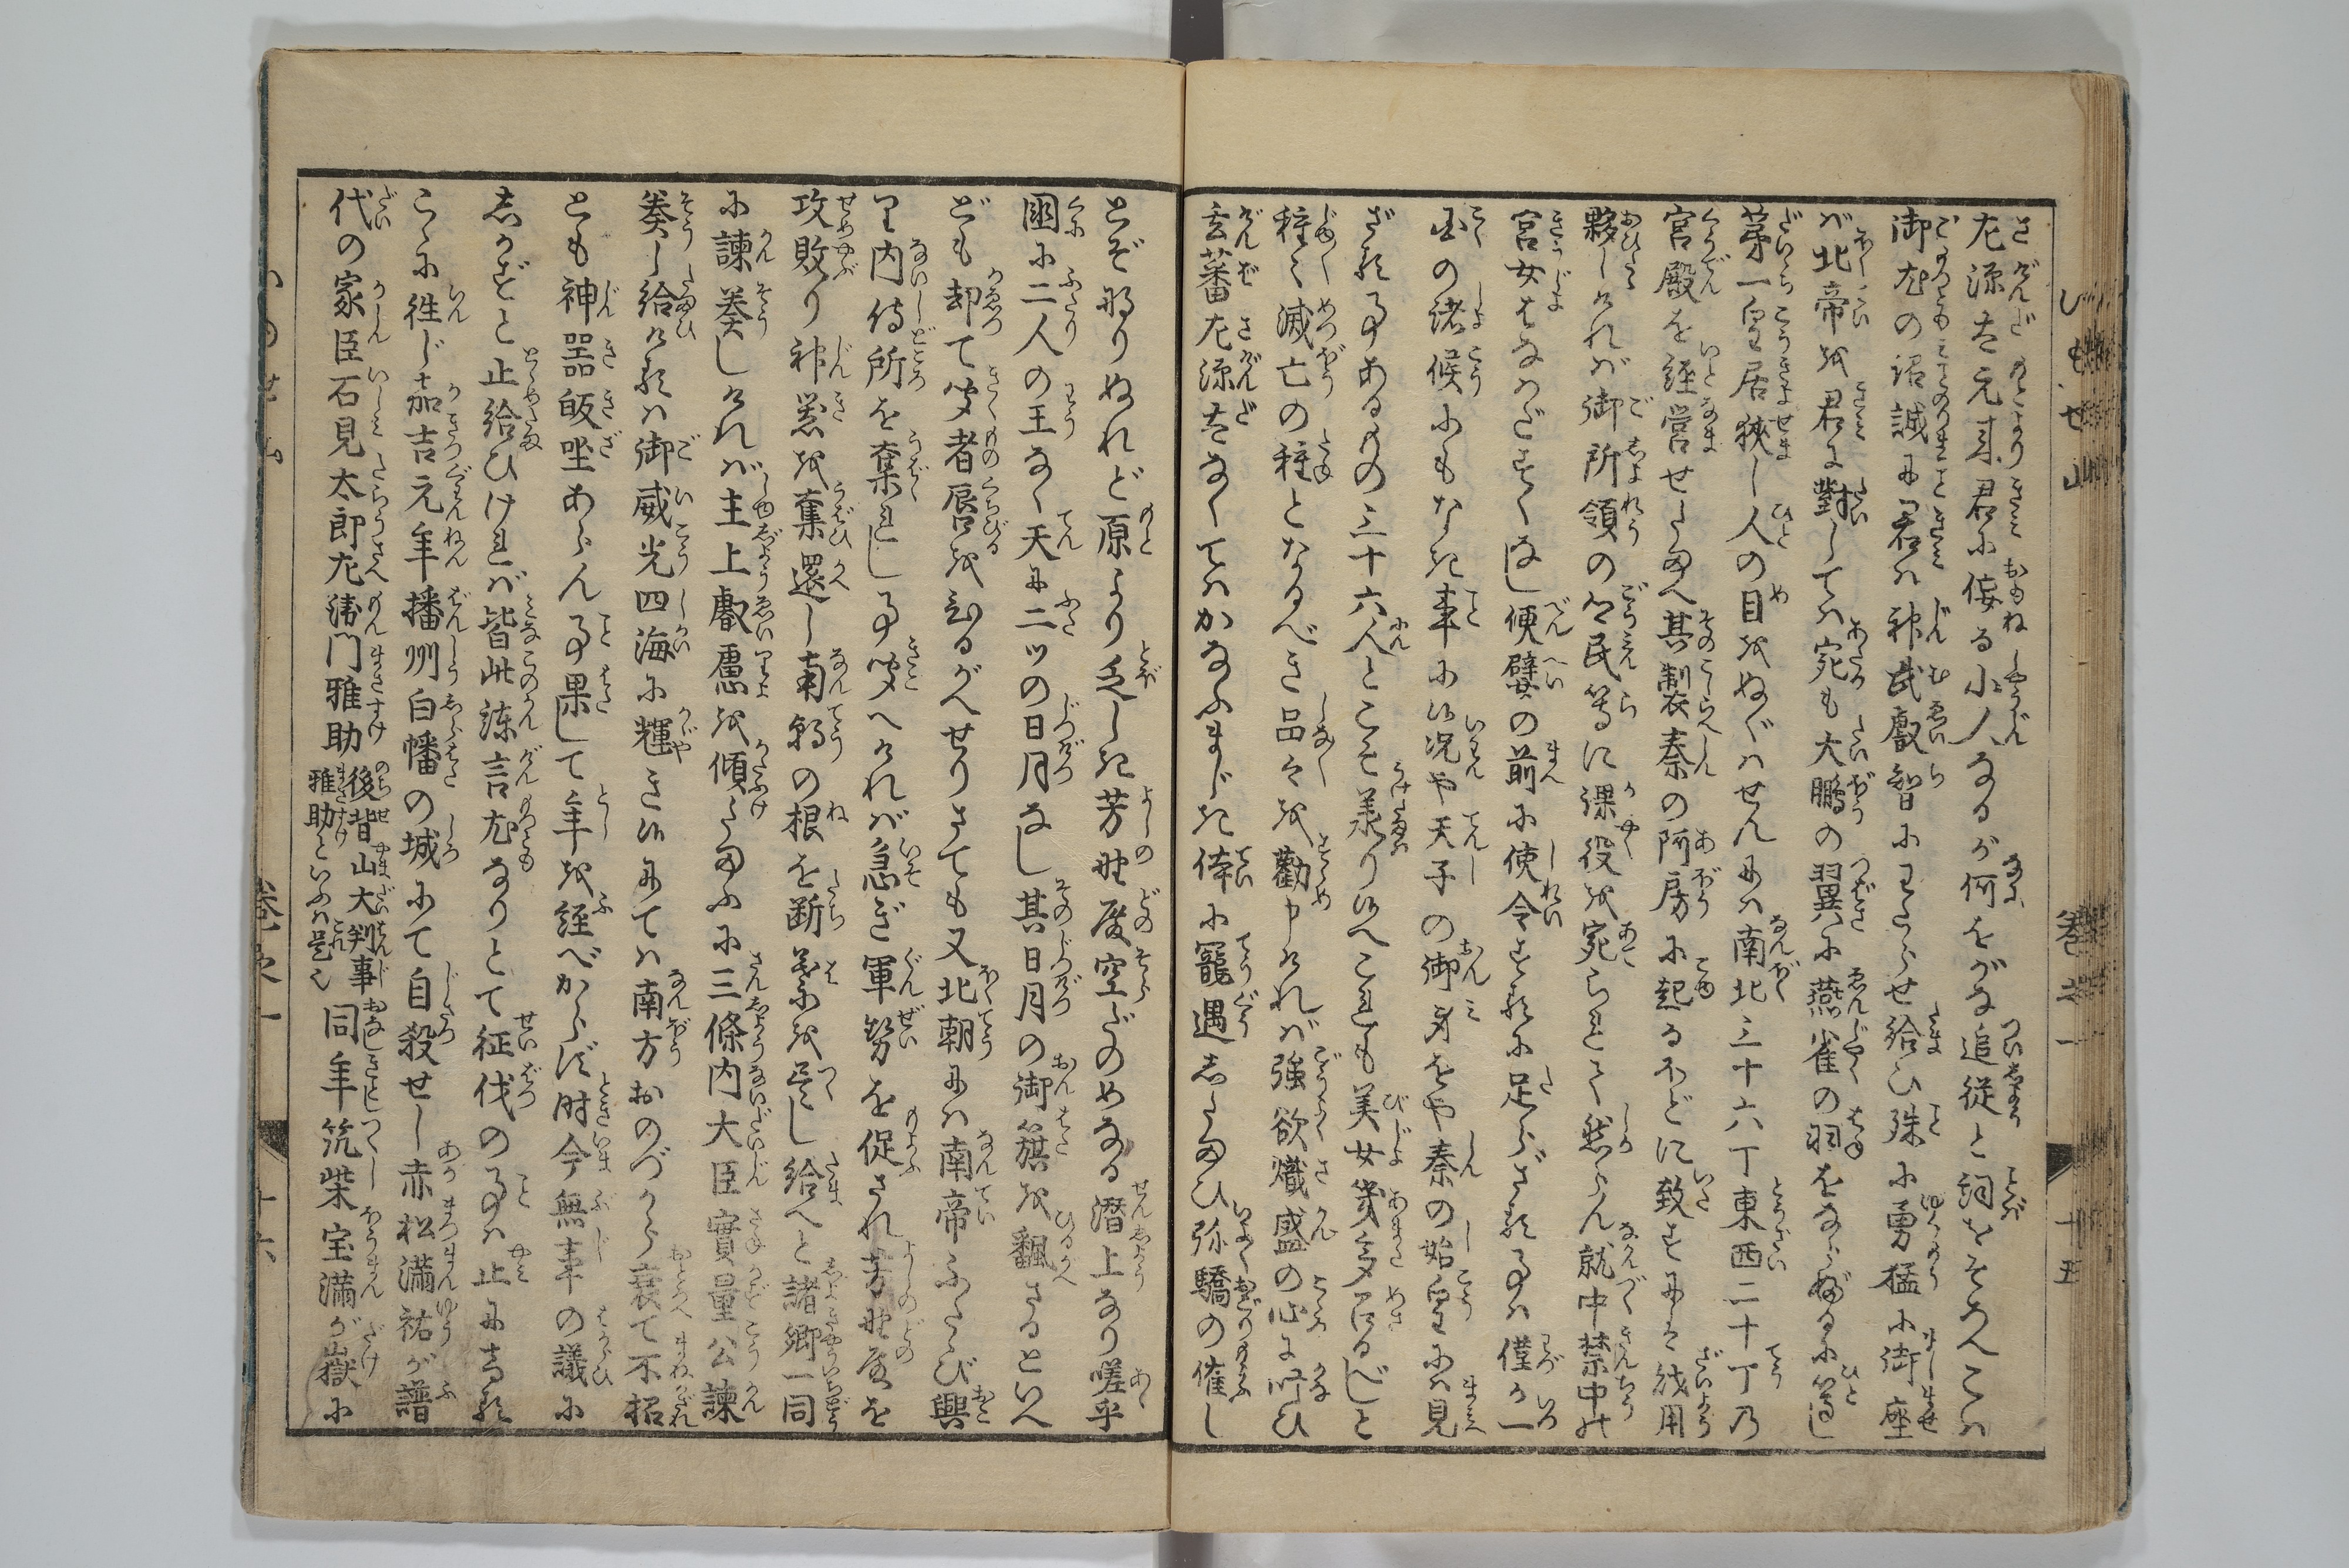 左源太元来君に侫る小人なるが何をがな追従と詞をそろへこは
御尤の詔誠に君は神武叡智にわたらせ給ひ殊に勇猛に御座
ば北帝を君に對しては宛も大鵬の翼に燕雀の羽をならぶるに等し
第一皇居狭し人の目をぬぐはせんには南北三十六丁東西二十丁乃
宮殿を経営せしめたまへ其製秦の阿房に起るほどに致すには
夥しければ御所領の民等に課役を宛られて然らん就中禁中の
宮女はなはだすくなし便嬖の前に使令するに足らざる事は僅か一
国の諸侯にもなき事に候况や天子の御身をや秦の始皇には見
ざる事あるもの三十六人とこそ美女幾多召るべしと
種々滅亡の種となるべき品々を勸め申ければ強欲熾盛の心に叶ひ
玄蕃左源太なくてはかなふまじき体に寵遇したまひ弥驕の催し
とぞ成りぬれど原より乏しき芳野殿空だのめなる潜上なり嗟乎
國に二人の王なく天に二ツの日月なし其日月の御籏を飜さるといへ
ども却て聞者唇をひるがへせりさても又北朝には南帝ふたゝび興
り内侍所を奪れし事聞へければ急ぎ軍勢を促され芳野殿を
攻敗り神器を奪還し南朝の根を断葉を尽し給へと諸卿一同
に諫奏しければ主上叡慮を傾たまふに三條内大臣實量公諫
奏し給けるは御威光四海に輝き候にては南方おのづから衰て不招
とも神器皈坐あらん事果して年を経べからず时今無事の議に
しかずと止給ひければ皆此諫言尤なりとて征伐の事は止にける
こゝに往じ嘉吉元年播州白幡の城にて自殺せし赤松満祐が譜
代の家臣石見太郎左衛門雅助 後背山大判事雅助といふは是也 同年筑柴宝満が嶽に
いもせ山
巻之一
十五
巻之一
十六